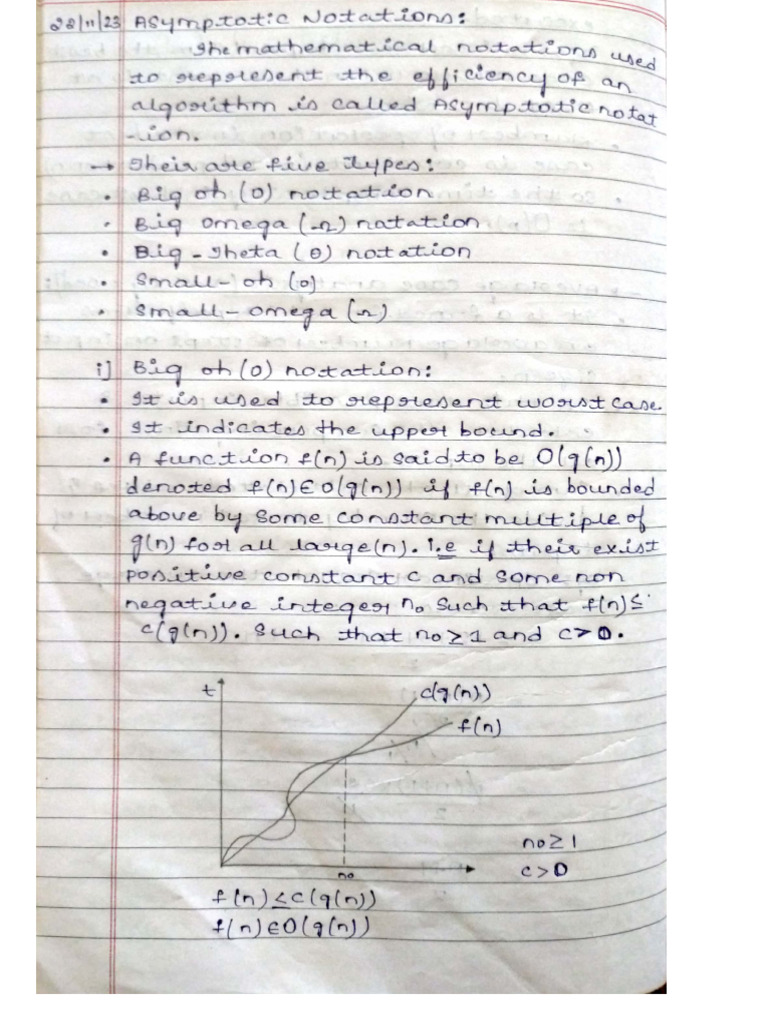 28/11/23 Asymptotic Notations:
The mathematical notations used
to represent the efficiency of an
algorithm is called Asymptotic notat
-ion.
→ Their are five types:
• Big oh (O) notation
• Big omega (Ω) notation
• Big-Theta (θ) notation
• Small-oh (o)
• Small-omega (ω)
i] Big oh (O) notation:
• It is used to represent worst case.
• It indicates the upper bound.
• A function f(n) is said to be O(g(n))
denoted f(n)∈O(g(n)) if f(n) is bounded
above by some constant multiple of
g(n) for all large(n). i.e if their exist
positive constant c and some non
negative integer n₀ such that f(n)≤
c(g(n)). Such that n₀≥1 and c>0.
t
c(g(n))
f(n)
n₀≥1
c>0
n₀
f(n)≤c(g(n))
f(n)∈O(g(n))